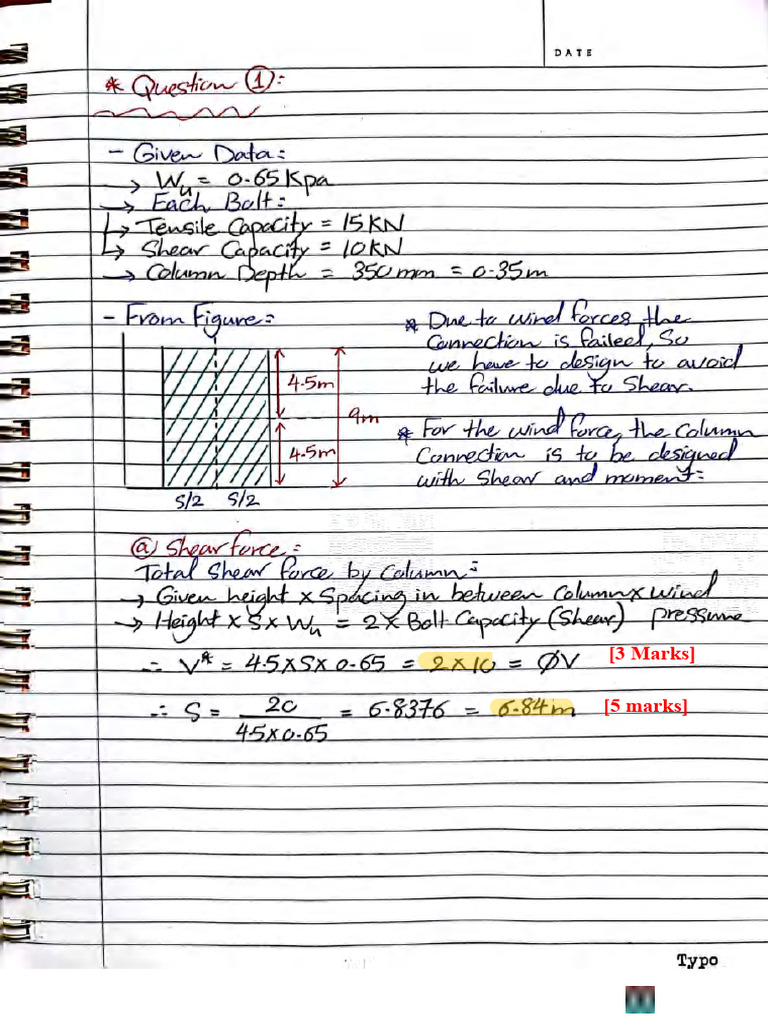 DATE
* Question ①:
- Given Data:
→ Wu = 0.65 Kpa
→ Each Bolt:
↳ Tensile Capacity = 15KN
↳ Shear Capacity = 10KN
→ Column Depth = 350mm = 0.35m
- From Figure:
4.5m
9m
4.5m
S/2 S/2
* Due to wind forces the
Connection is failed, So
we have to design to avoid
the failure due to Shear.
* For the wind force, the Column
Connection is to be designed
with Shear and moment:
ⓐ Shear force:
Total Shear force by Column:
→ Given height x Spacing in between Column x wind
pressure
→ Height x S x Wu = 2 x Bolt Capacity (Shear)
∴ V* = 4.5 x S x 0.65 = 2 x 10 = ØV [3 Marks]
∴ S = 20 / 4.5 x 0.65 = 6.8376 = 6.84m [5 marks]
Typo